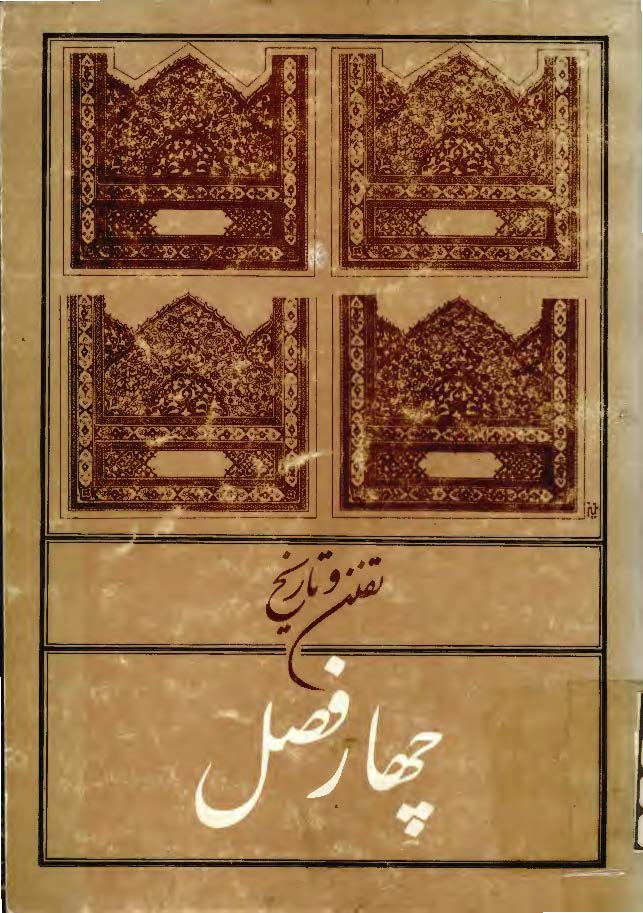 تفنن و تاریخ
چهار فصل